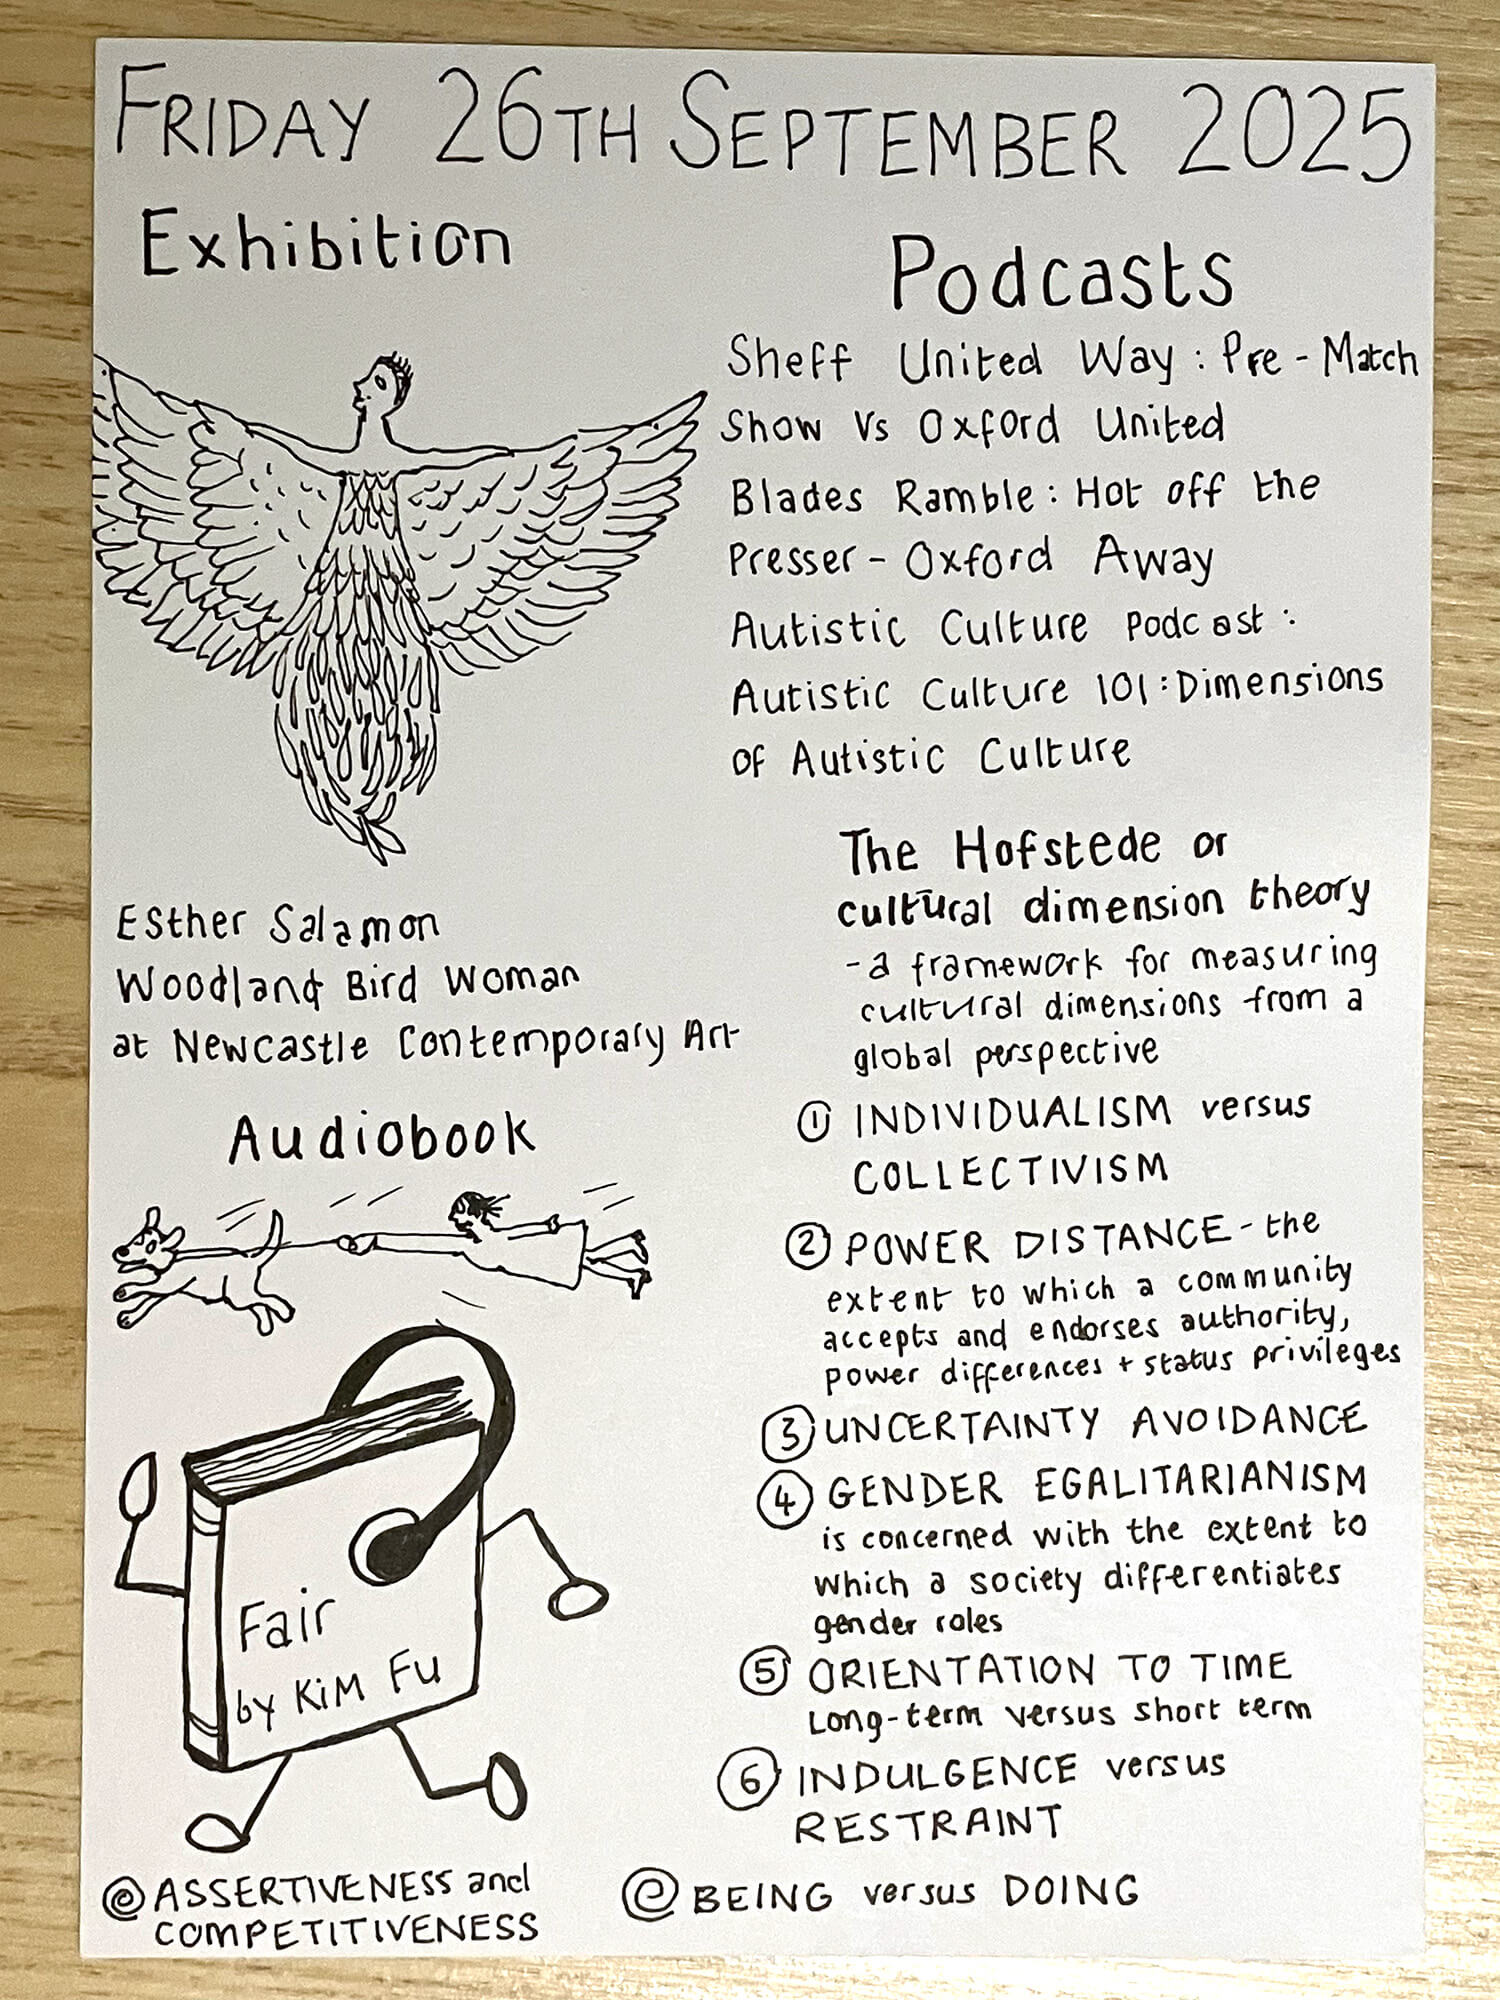 FRIDAY 26TH SEPTEMBER 2025
Exhibition
Esther Salamon
Woodland Bird Woman
at Newcastle Contemporary Art
Audiobook
Fair
by Kim Fu
@ ASSERTIVENESS and
COMPETITIVENESS
Podcasts
Sheff United Way : Pre - Match
Show Vs Oxford United
Blades Ramble : Hot off the
Presser - Oxford Away
Autistic Culture Podcast :
Autistic Culture 101 : Dimensions
of Autistic Culture
The Hofstede or
cultural dimension theory
- a framework for measuring
cultural dimensions from a
global perspective
① INDIVIDUALISM versus
COLLECTIVISM
② POWER DISTANCE - the
extent to which a community
accepts and endorses authority,
power differences + status privileges
③ UNCERTAINTY AVOIDANCE
④ GENDER EGALITARIANISM
is concerned with the extent to
which a society differentiates
gender roles
⑤ ORIENTATION TO TIME
Long-term versus short term
⑥ INDULGENCE versus
RESTRAINT
@ BEING versus DOING